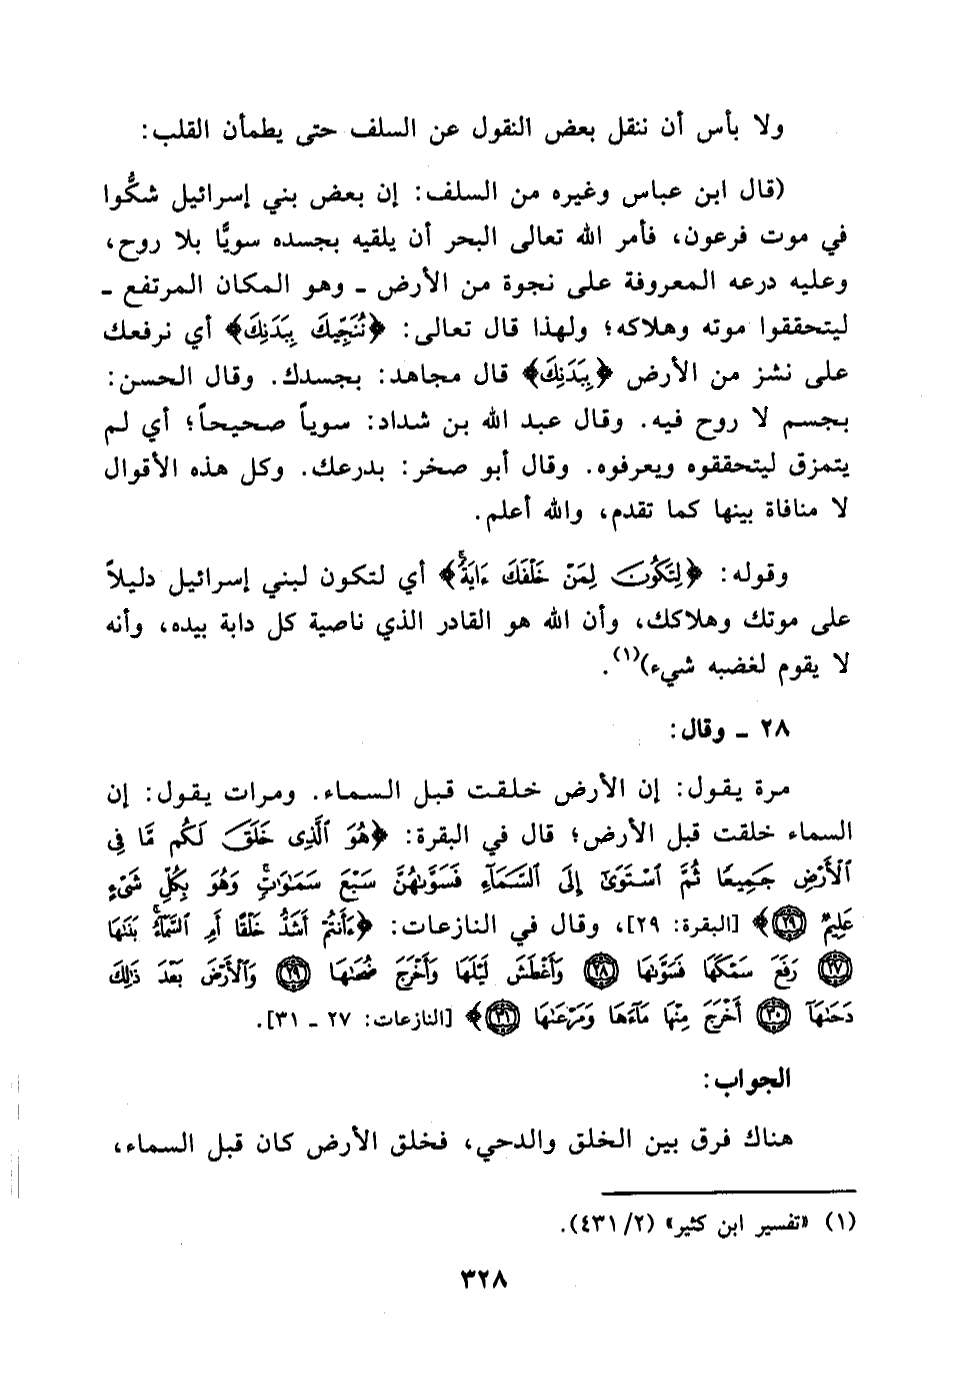 ولا بأس أن ننقل بعض النقول عن السلف حتى يطمأن القلب:
(قال ابن عباس وغيره من السلف: إن بعض بني إسرائيل شكُّوا
في موت فرعون، فأمر الله تعالى البحر أن يلقيه بجسده سويًّا بلا روح،
وعليه درعه المعروفة على نجوة من الأرض ـ وهو المكان المرتفع ـ
ليتحققوا موته وهلاكه؛ ولهذا قال تعالى: ﴿نُنَجِّيكَ بِبَدَنِكَ﴾ أي نرفعك
على نشز من الأرض ﴿بِبَدَنِكَ﴾ قال مجاهد: بجسدك. وقال الحسن:
بجسم لا روح فيه. وقال عبد الله بن شداد: سوياً صحيحاً؛ أي لم
يتمزق ليتحققوه ويعرفوه. وقال أبو صخر: بدرعك. وكل هذه الأقوال
لا منافاة بينها كما تقدم، والله أعلم.
وقوله: ﴿لِتَكُونَ لِمَنْ خَلْفَكَ ءَايَةً﴾ أي لتكون لبني إسرائيل دليلاً
على موتك وهلاكك، وأن الله هو القادر الذي ناصية كل دابة بيده، وأنه
لا يقوم لغضبه شيء)(١).
٢٨ ـ وقال:
مرة يقول: إن الأرض خلقت قبل السماء. ومرات يقول: إن
السماء خلقت قبل الأرض؛ قال في البقرة: ﴿هُوَ ٱلَّذِى خَلَقَ لَكُم مَّا فِى
ٱلْأَرْضِ جَمِيعًا ثُمَّ ٱسْتَوَىٰٓ إِلَى ٱلسَّمَآءِ فَسَوَّىٰهُنَّ سَبْعَ سَمَٰوَٰتٍ ۚ وَهُوَ بِكُلِّ شَىْءٍ
عَلِيمٌ ٢٩﴾ [البقرة: ٢٩]، وقال في النازعات: ﴿ءَأَنتُمْ أَشَدُّ خَلْقًا أَمِ ٱلسَّمَآءُ ۚ بَنَىٰهَا
٢٧ رَفَعَ سَمْكَهَا فَسَوَّىٰهَا ٢٨ وَأَغْطَشَ لَيْلَهَا وَأَخْرَجَ ضُحَىٰهَا ٢٩ وَٱلْأَرْضَ بَعْدَ ذَٰلِكَ
دَحَىٰهَآ ٣٠ أَخْرَجَ مِنْهَا مَآءَهَا وَمَرْعَىٰهَا ٣١﴾ [النازعات: ٢٧ ـ ٣١].
الجواب:
هناك فرق بين الخلق والدحي، فخلق الأرض كان قبل السماء،
(١) «تفسير ابن كثير» (٢/ ٤٣١).
٣٢٨